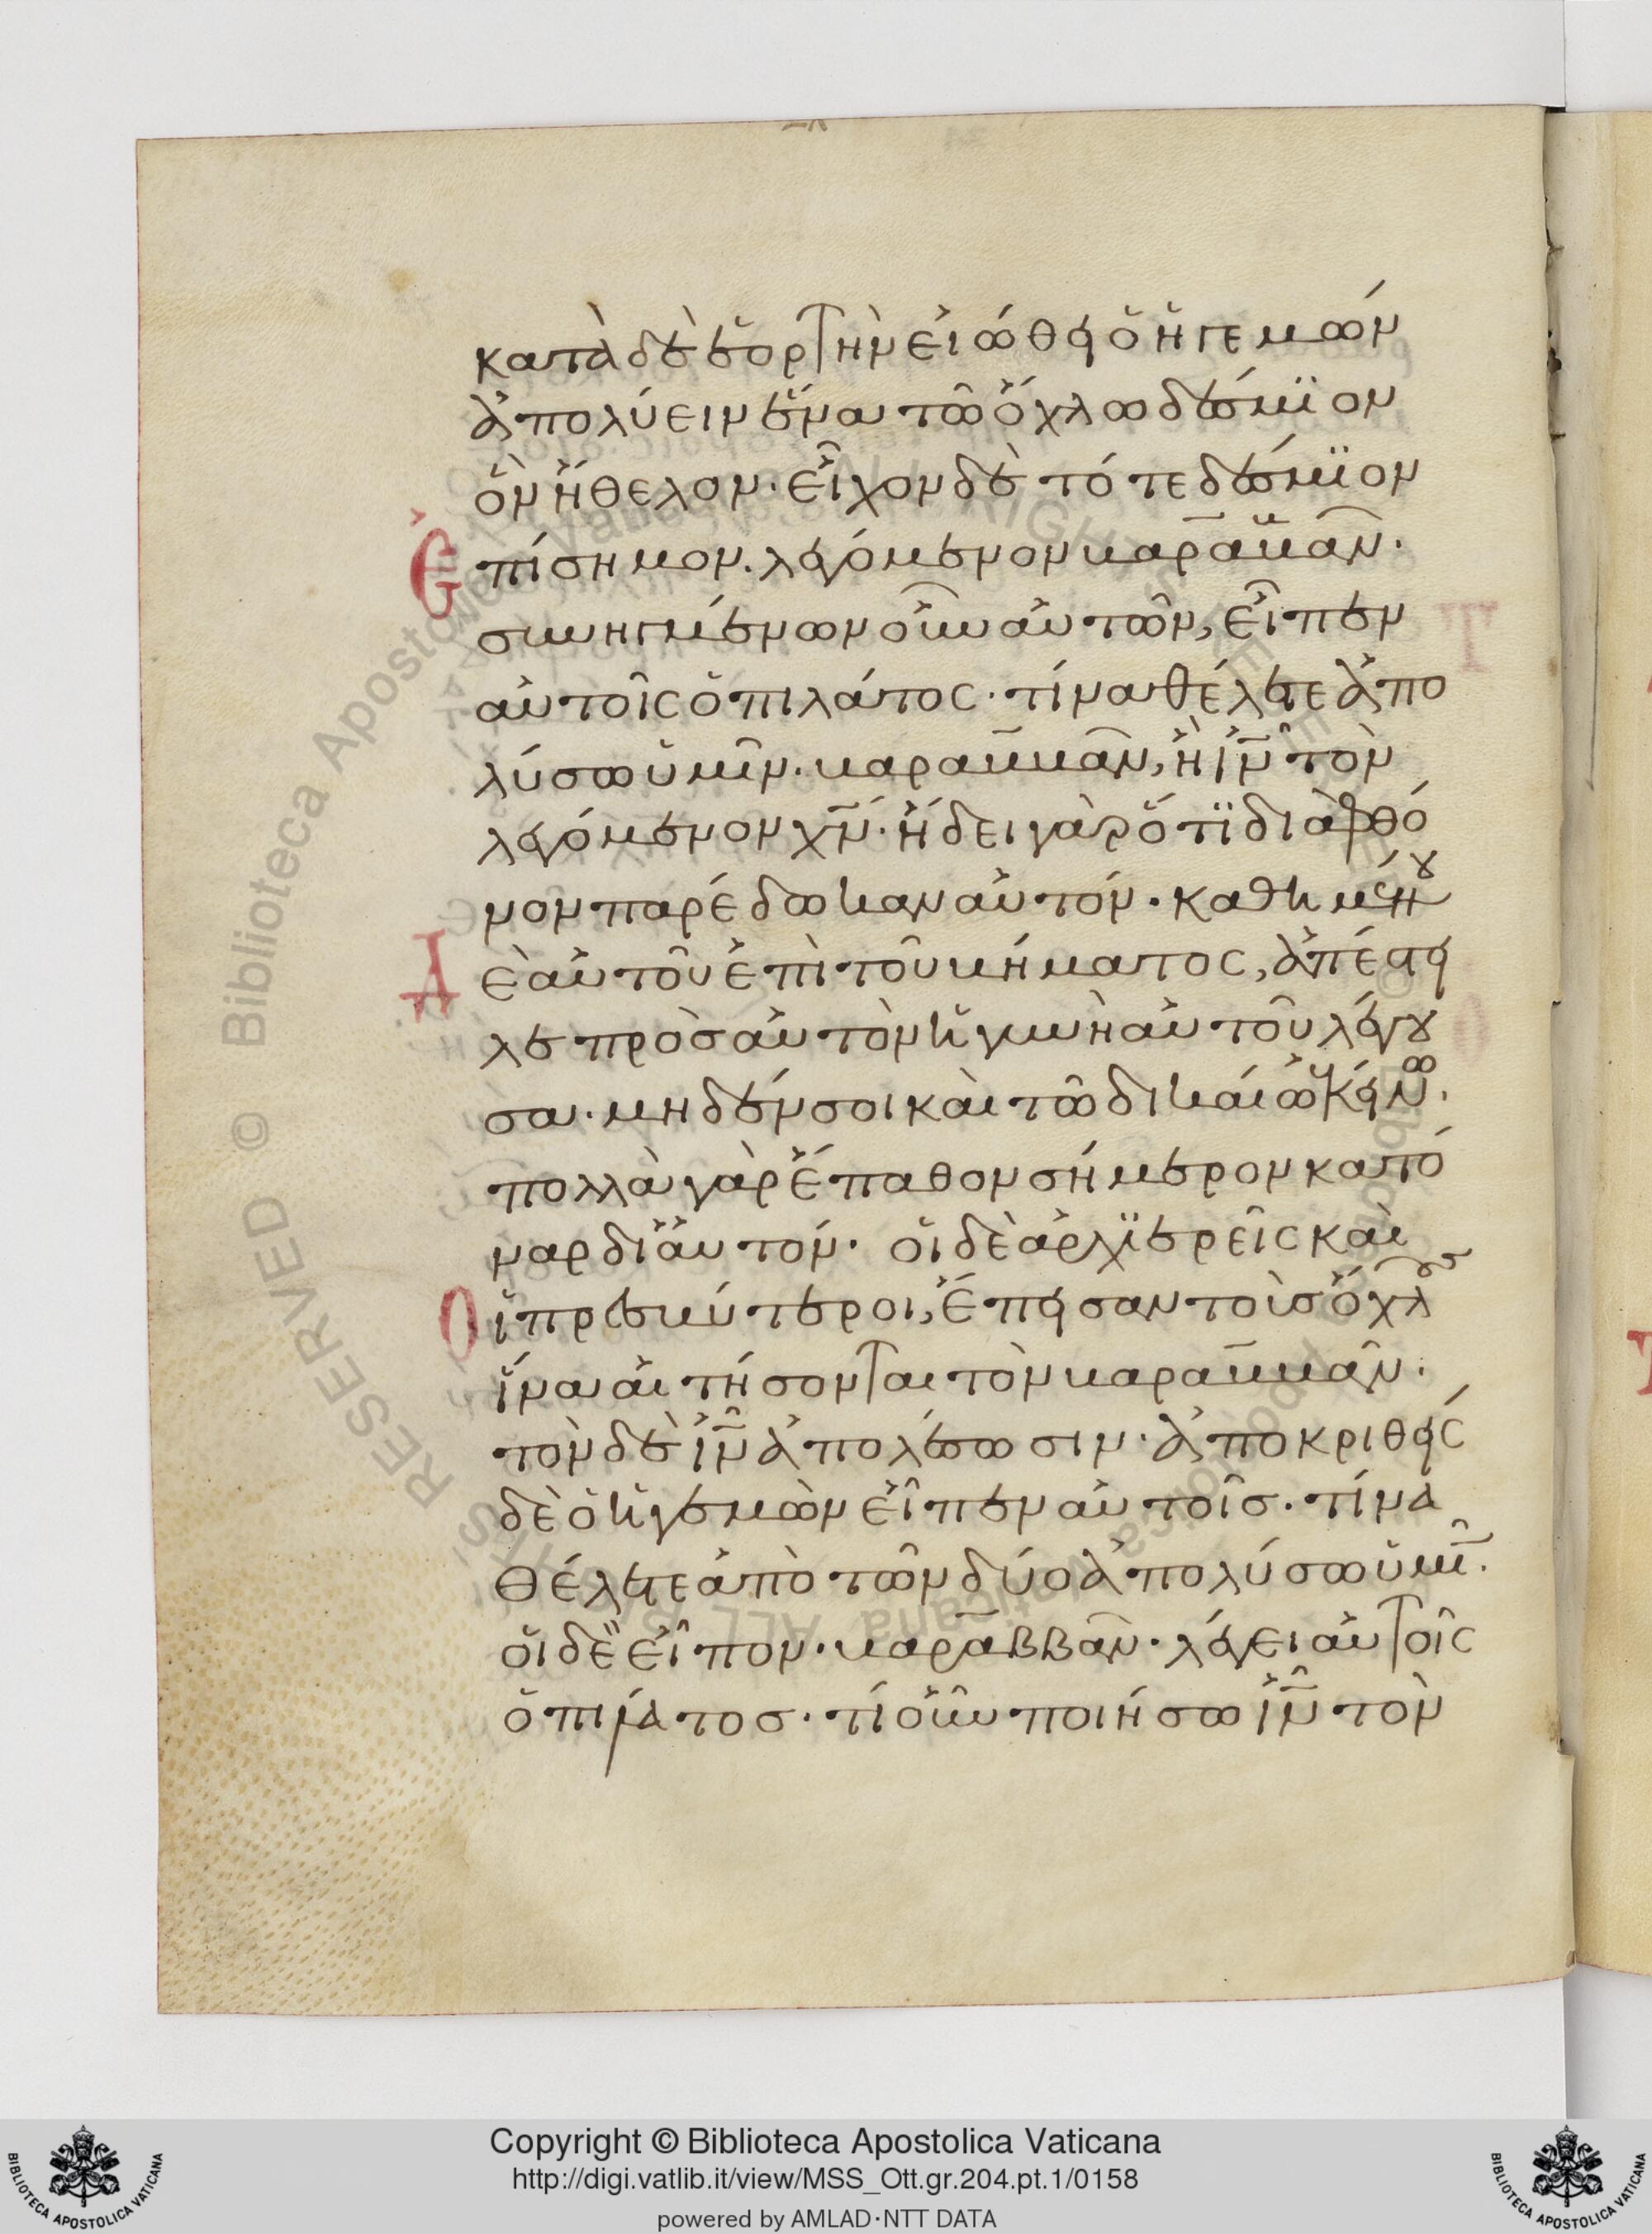 κατὰ δὲ ἑορτὴν εἰώθει ὁ ἡγεμὼν
ἀπολύειν ἕνα τῶ ὄχλω δέσμϊον
ὃν ἤθελον. εἶχον δὲ τότε δέσμϊον
Ἐπίσημον. λεγόμενον βαραββᾶν.
συνηγμένων οὖν αὐτῶν, εἶπεν
αὐτοῖς ὁ πιλάτος. τίνα θέλετε ἀπο
λύσω ὑμῖν. βαραββᾶν, ἢ ἰν̄ τὸν
λεγόμενον χν̄. ἤδει γὰρ ὅτϊ διὰ φθό
νον παρέδωκαν αὐτόν. καθημένου
Α ἐ αὐτοῦ ἐπὶ τοῦ βήματος, ἀπέστει
λε πρὸς αὐτὸν ἡ γυνὴ αὐτοῦ λέγου
σα. μηδέν σοι καὶ τῶ δικαίω ἐκείνω.
πολλὰ γὰρ ἔπαθον σήμερον κατ' ό
ναρ δι' αὐτόν. οἱ δὲ ἀρχϊερεῖς καὶ
Ο ἱ πρεσβύτεροι, ἔπεισαν τοὺς ὄχλους
ἵνα αἰτήσονται τὸν βαραββᾶν.
τὸν δὲ ἰν̄ ἀπολέσωσιν. ἀποκριθεὶς
δὲ ὁ ἡγεμὼν εἶπεν αὐτοῖς. τίνα
θέλετε ἀπὸ τῶν δύο ἀπολύσω ὑμῖν.
οἱ δὲ εἶπον. βαραββᾶν. λέγει αὐτοῖς
ὁ πιλάτος. τί οὖν ποιήσω ἰν̄ τὸν
RESERVED © Biblioteca Apostolica Vaticana
Copyright © Biblioteca Apostolica Vaticana
http://digi.vatlib.it/view/MSS_Ott.gr.204.pt.1/0158
powered by AMLAD·NTT DATA
BIBLIOTECA APOSTOLICA VATICANA
BIBLIOTECA APOSTOLICA VATICANA